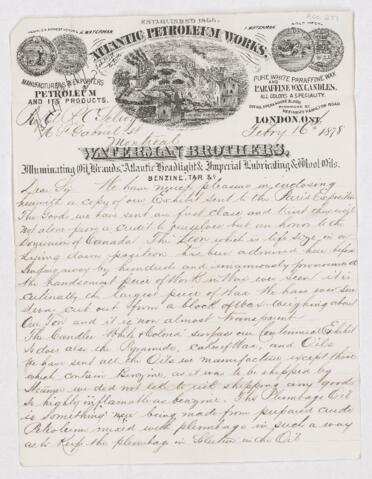 ESTABLISHED 1866.
ATLANTIC PETROLEUM WORKS,
MANUFACTURERS & EXPORTERS
OF
PETROLEUM
AND ITS PRODUCTS.
PURE WHITE PARAFFINE WAX
AND
PARAFFINE WAX CANDLES,
ALL COLORS A SPECIALTY.
LONDON, ONT.
Febry 16th 1878
St Gabriel St
Montreal
WATERMAN BROTHERS,
Illuminating Oil Brands, Atlantic Headlight & Imperial Lubricating & Wool Oils.
BENZINE, TAR &c.
Dear Sir We have much pleasure in enclosing
herewith a copy of our Exhibit sent to the Paris Exposition
The Goods we have sent are first class and trust they will
not alone prove a credit to ourselves but an honor to the
Dominion of Canada. The Lion which is life size in a
lying down position has been admired here before
sending away by hundreds and unanimously pronounced
the handsomest piece of work in Wax ever seen it is
certainly the largest piece of Wax. We have ever seen
cut out from a block of Wax weighing about
one Ton and it is now almost transparent
The Candles White & Colored surpass our Centennial Exhibit
So does also the Pyramids, cakes of Wax, and Oils
We have sent all the Oils we manufacture except those
which contain Benzine, as it was to be shipped by
Steamer we did not like to risk shipping any goods
so highly inflamable as benzine. The Plumbago Oil
is something new being made from prepared crude
Petroleum mixed with plumbago in such a way
as to keep the plumbago in solution in the Oil